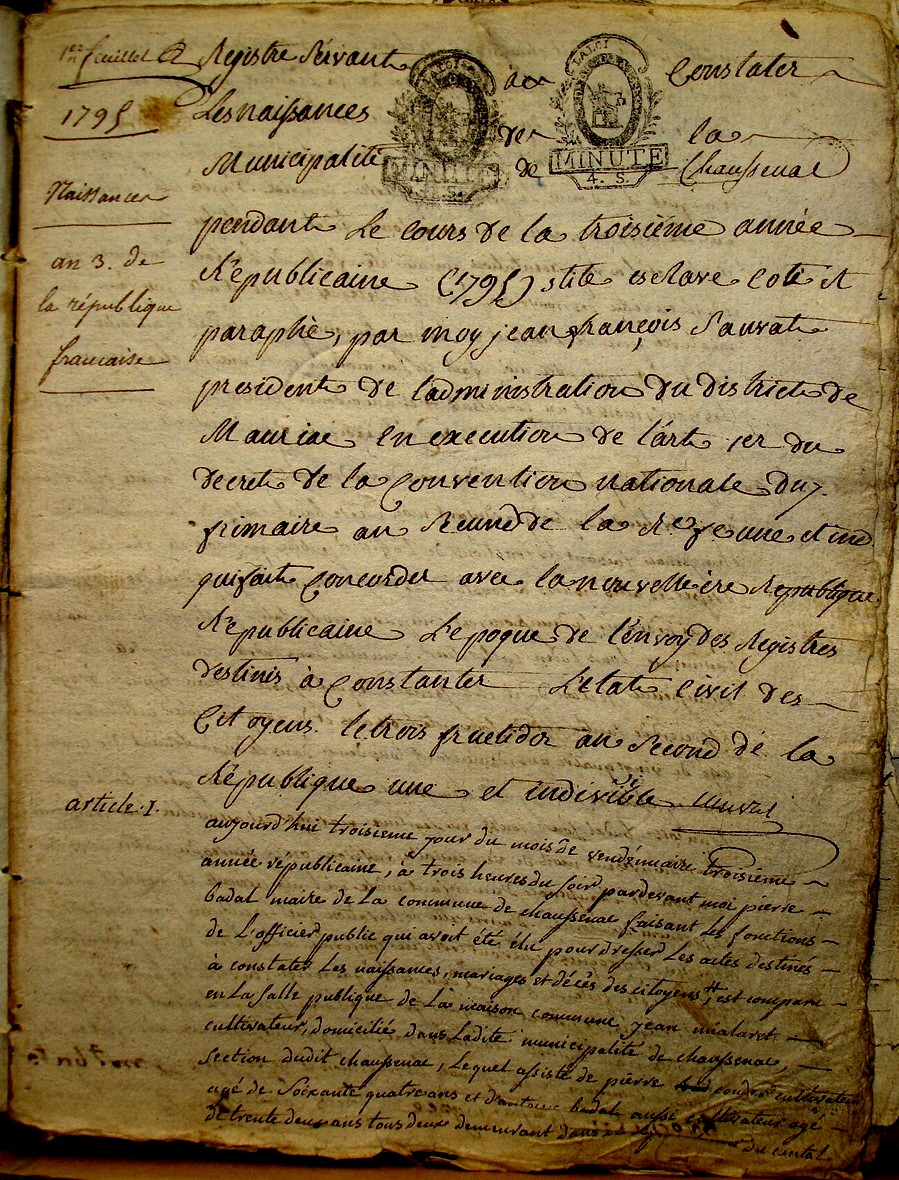 1er feuillet
1795
Naissances
an 3. de
la république
francaise
article. 1.
Registre Servant au Constater
Les naissances de la
Municipalité de Chaussenac
LA LOI
MINUTE
4. S.
LA LOI
MINUTE
4. S.
pendant Le Cours de la troisième année
Republicaine (1795) stile esclave Coté et
paraphé, par moy jean françois Sauvat
president de l'administration du district de
Mauriac En execution de l'art 1er du
decret de la Convention nationale du 7.
frimaire an Second de la une et ind
qui fait Concorder avec la nouvelle ère Republique
Republicaine L'epoque de l'envoy des Registres
destinés à Constater L'etat Civil des
Citoyens. le trois fructidor an Second de la
République une et indivisible Sauvat
aujourd'hui troisieme jour du mois de vendémiaire troisième
année républicaine, à trois heures du soir pardevant moi pierre
badal maire de La commune de chaussenac faisant Les fonctions
de L'officier public qui avoit été élu pour dresser Les actes destinés
à constater Les naissances, mariages et décès des citoyens, est comparu
en La Salle publique de La maison commune jean méalaret
cultivateur, domicilié dans Ladite municipalité de chaussenac,
Section dudit chaussenac, Lequel assisté de pierre cultivateur
agé de Soixante quatre ans et d'antoine badal aussi cultivateur agé
de trente deux ans tous deux demeurant dans du cantal